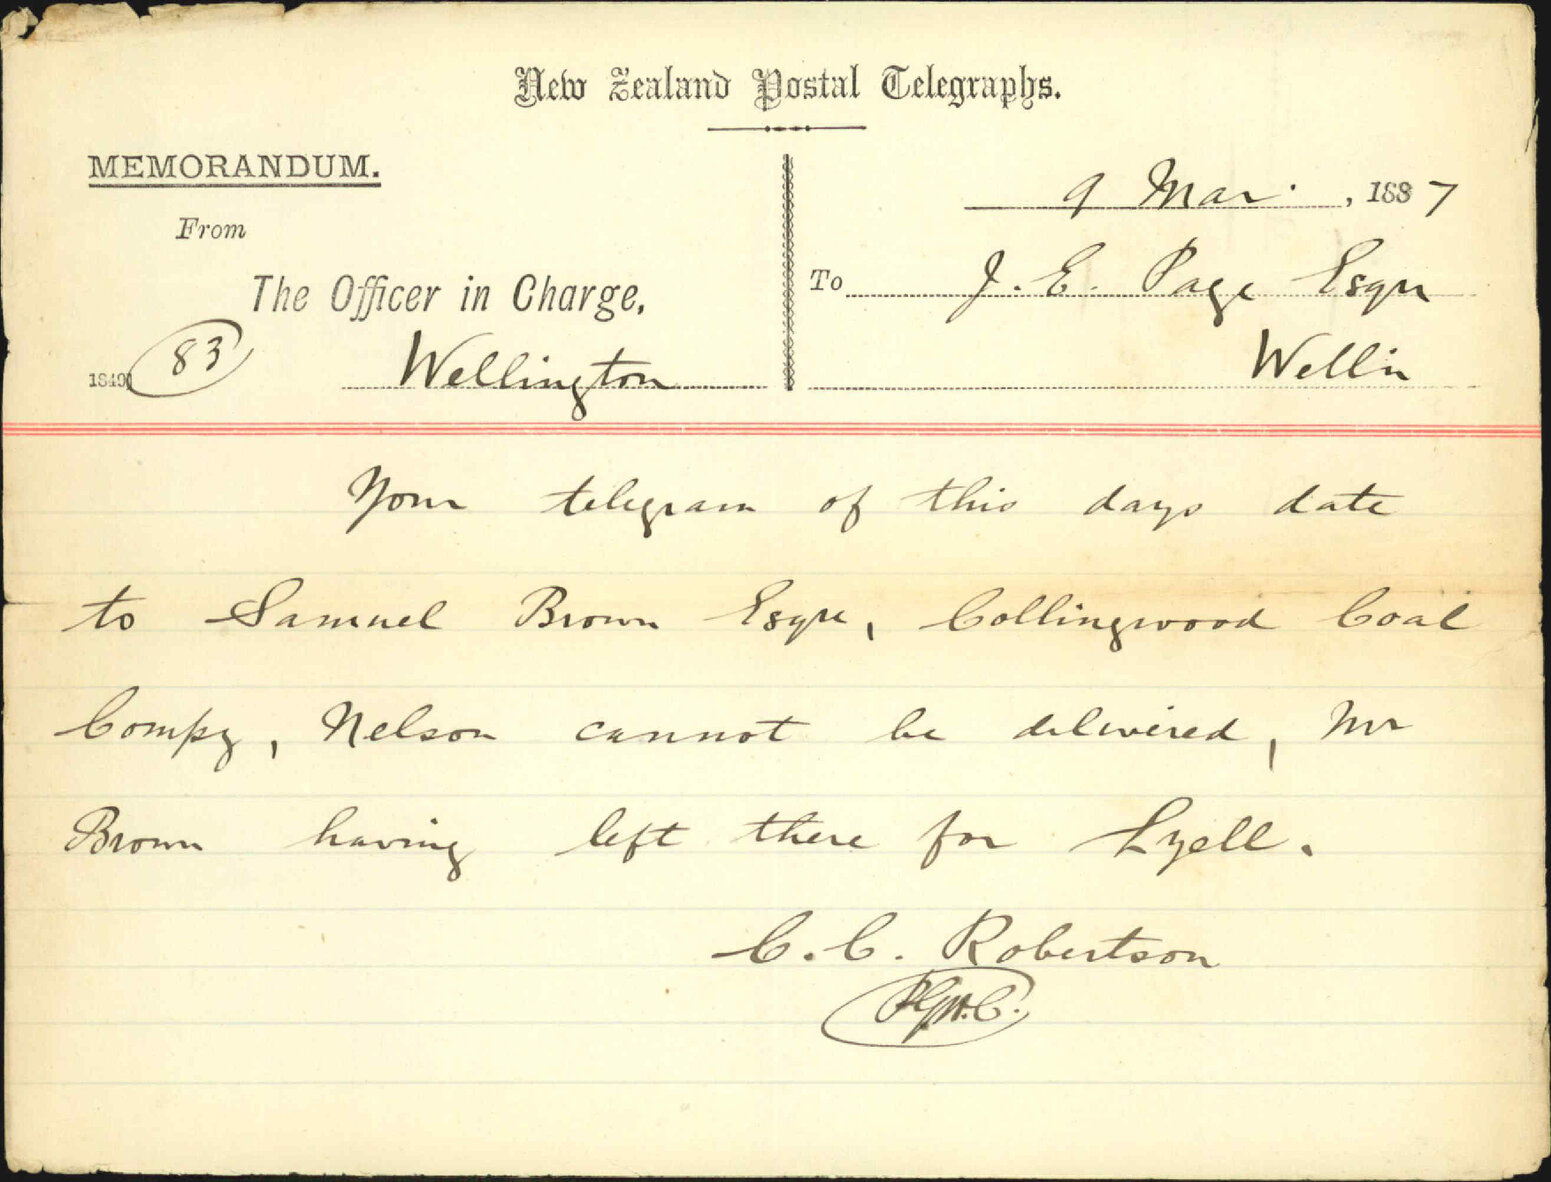 New Zealand Postal Telegraphs.
MEMORANDUM.
From
The Officer in Charge,
83
Wellington
9 Mar. , 1887
To J. E. Page Esqre
Welln
Your telegram of this days date
to Samuel Brown Esqre, Collingwood Coal
Compy, Nelson cannot be delivered, Mr
Brown having left there for Lyell.
C. C. Robertson